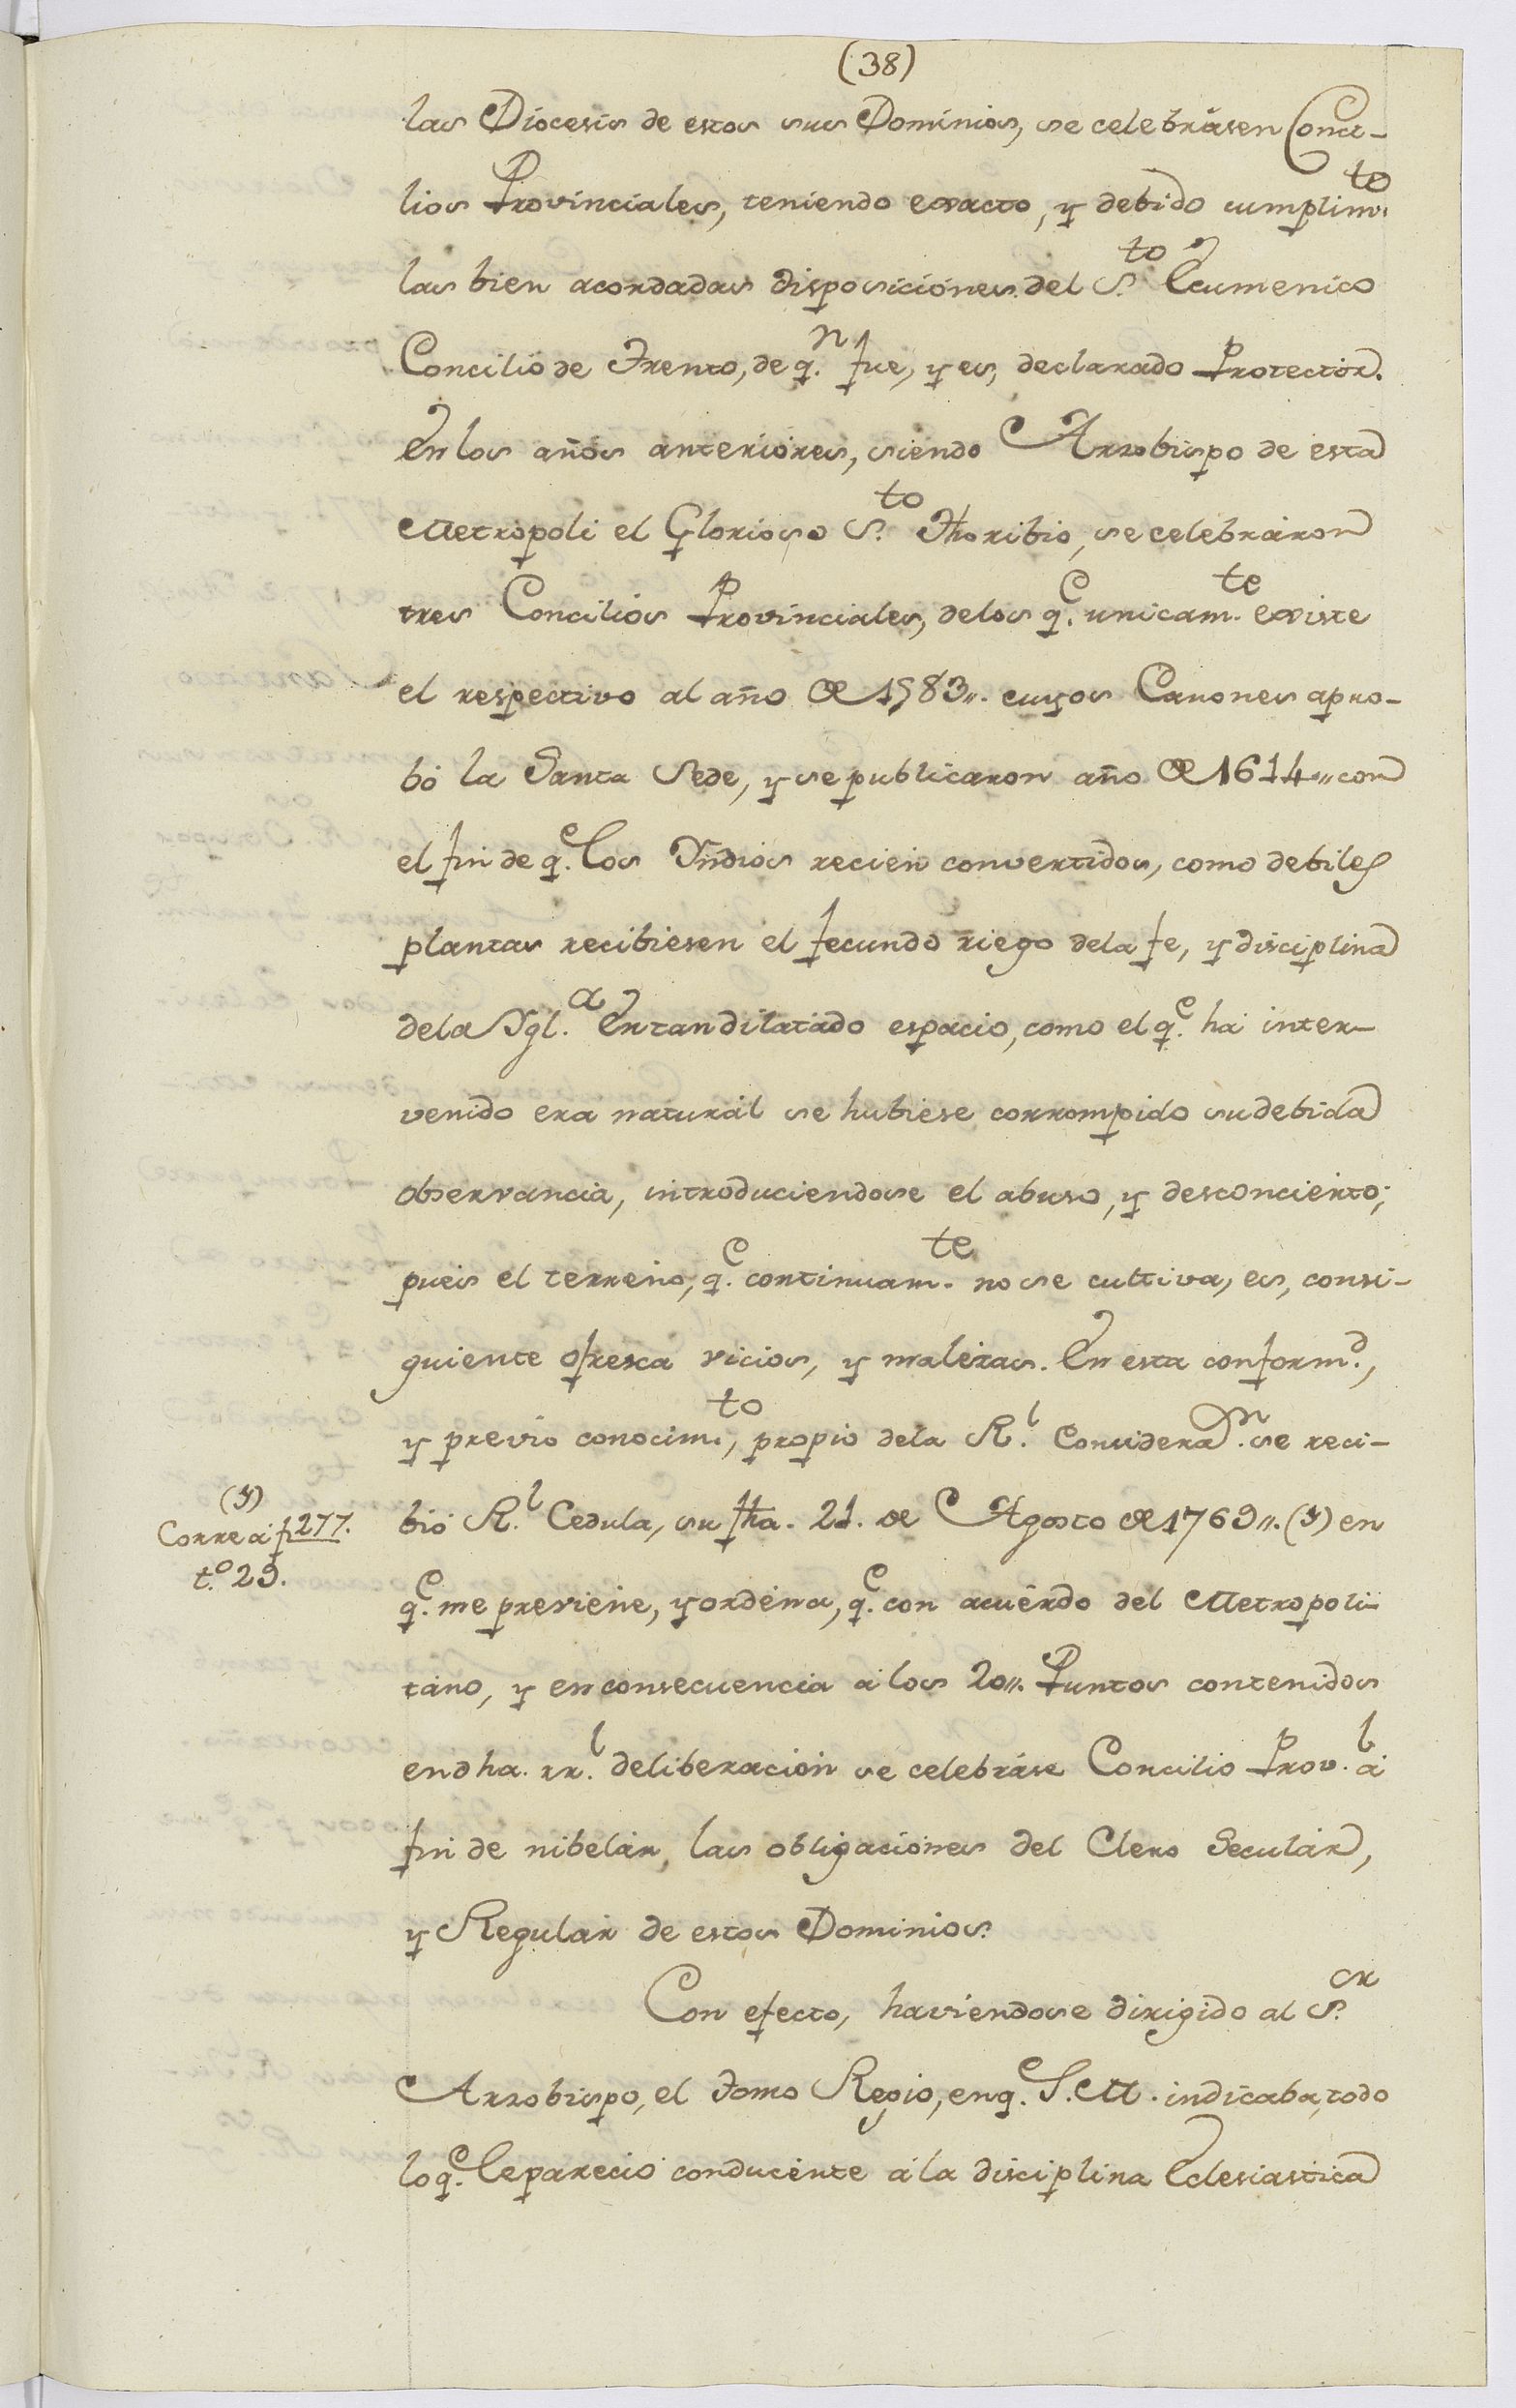 (38)
las Diocesis de estos sus Dominios, se celebrásen Conci-
lios Provinciales, teniendo exacto, y debido cumplim.to
las bien acordadas disposiciónes del S.to Ecumenico
Concilio de Trento, de q.n fue, y es, declarado Protectór.
En los años anterióres, siendo Arzobispo de esta
Metropoli el Glorioso S.to Thoribio, se celebráron
tres Concilios Provinciales, delos q.e unicam.te existe
el respectivo al año de 1583,,. cuyos Canones apro-
bó la Santa Sede, y se publicaron año de 1614,, con
el fin de q.e los Yndios recien convertidos, como debiles
plantas recibiesen el fecundo riego dela fe, y disciplina
dela Ygl.a En tan dilatado espacio, como el q.e ha inter-
venido era naturál se hubiese corrompido su debida
observancia, introduciendose el abuso, y desconcierto;
pues el terreno, q.e continuam.te no se cultiva, es, consi-
guiente ofresca vicios, y malezas. En esta conform.d,
y previo conocim.to, propio dela R.l Considera.n se reci-
bió R.l Cedula, su fha. 21. de Agosto de 1769,,. (y) en
q.e me previene, y ordena, q.e con acuérdo del Metropoli-
tano, y en consecuencia á los 20,,. Puntos contenidos
en dha. rr.l deliberación se celebráse Concilio Prov.l á
fin de nibelár, las obligaciónes del Clero Seculár,
y Regulár de estos Dominios.
Con efecto, haviendose dirigido al S.or
Arzobispo, el Tomo Regio, en q.e S.M. indicaba, todo
lo q.e le pareció conducente á la disciplina Eclesiastica
(y)
Corre á f 277.
t.o 29.